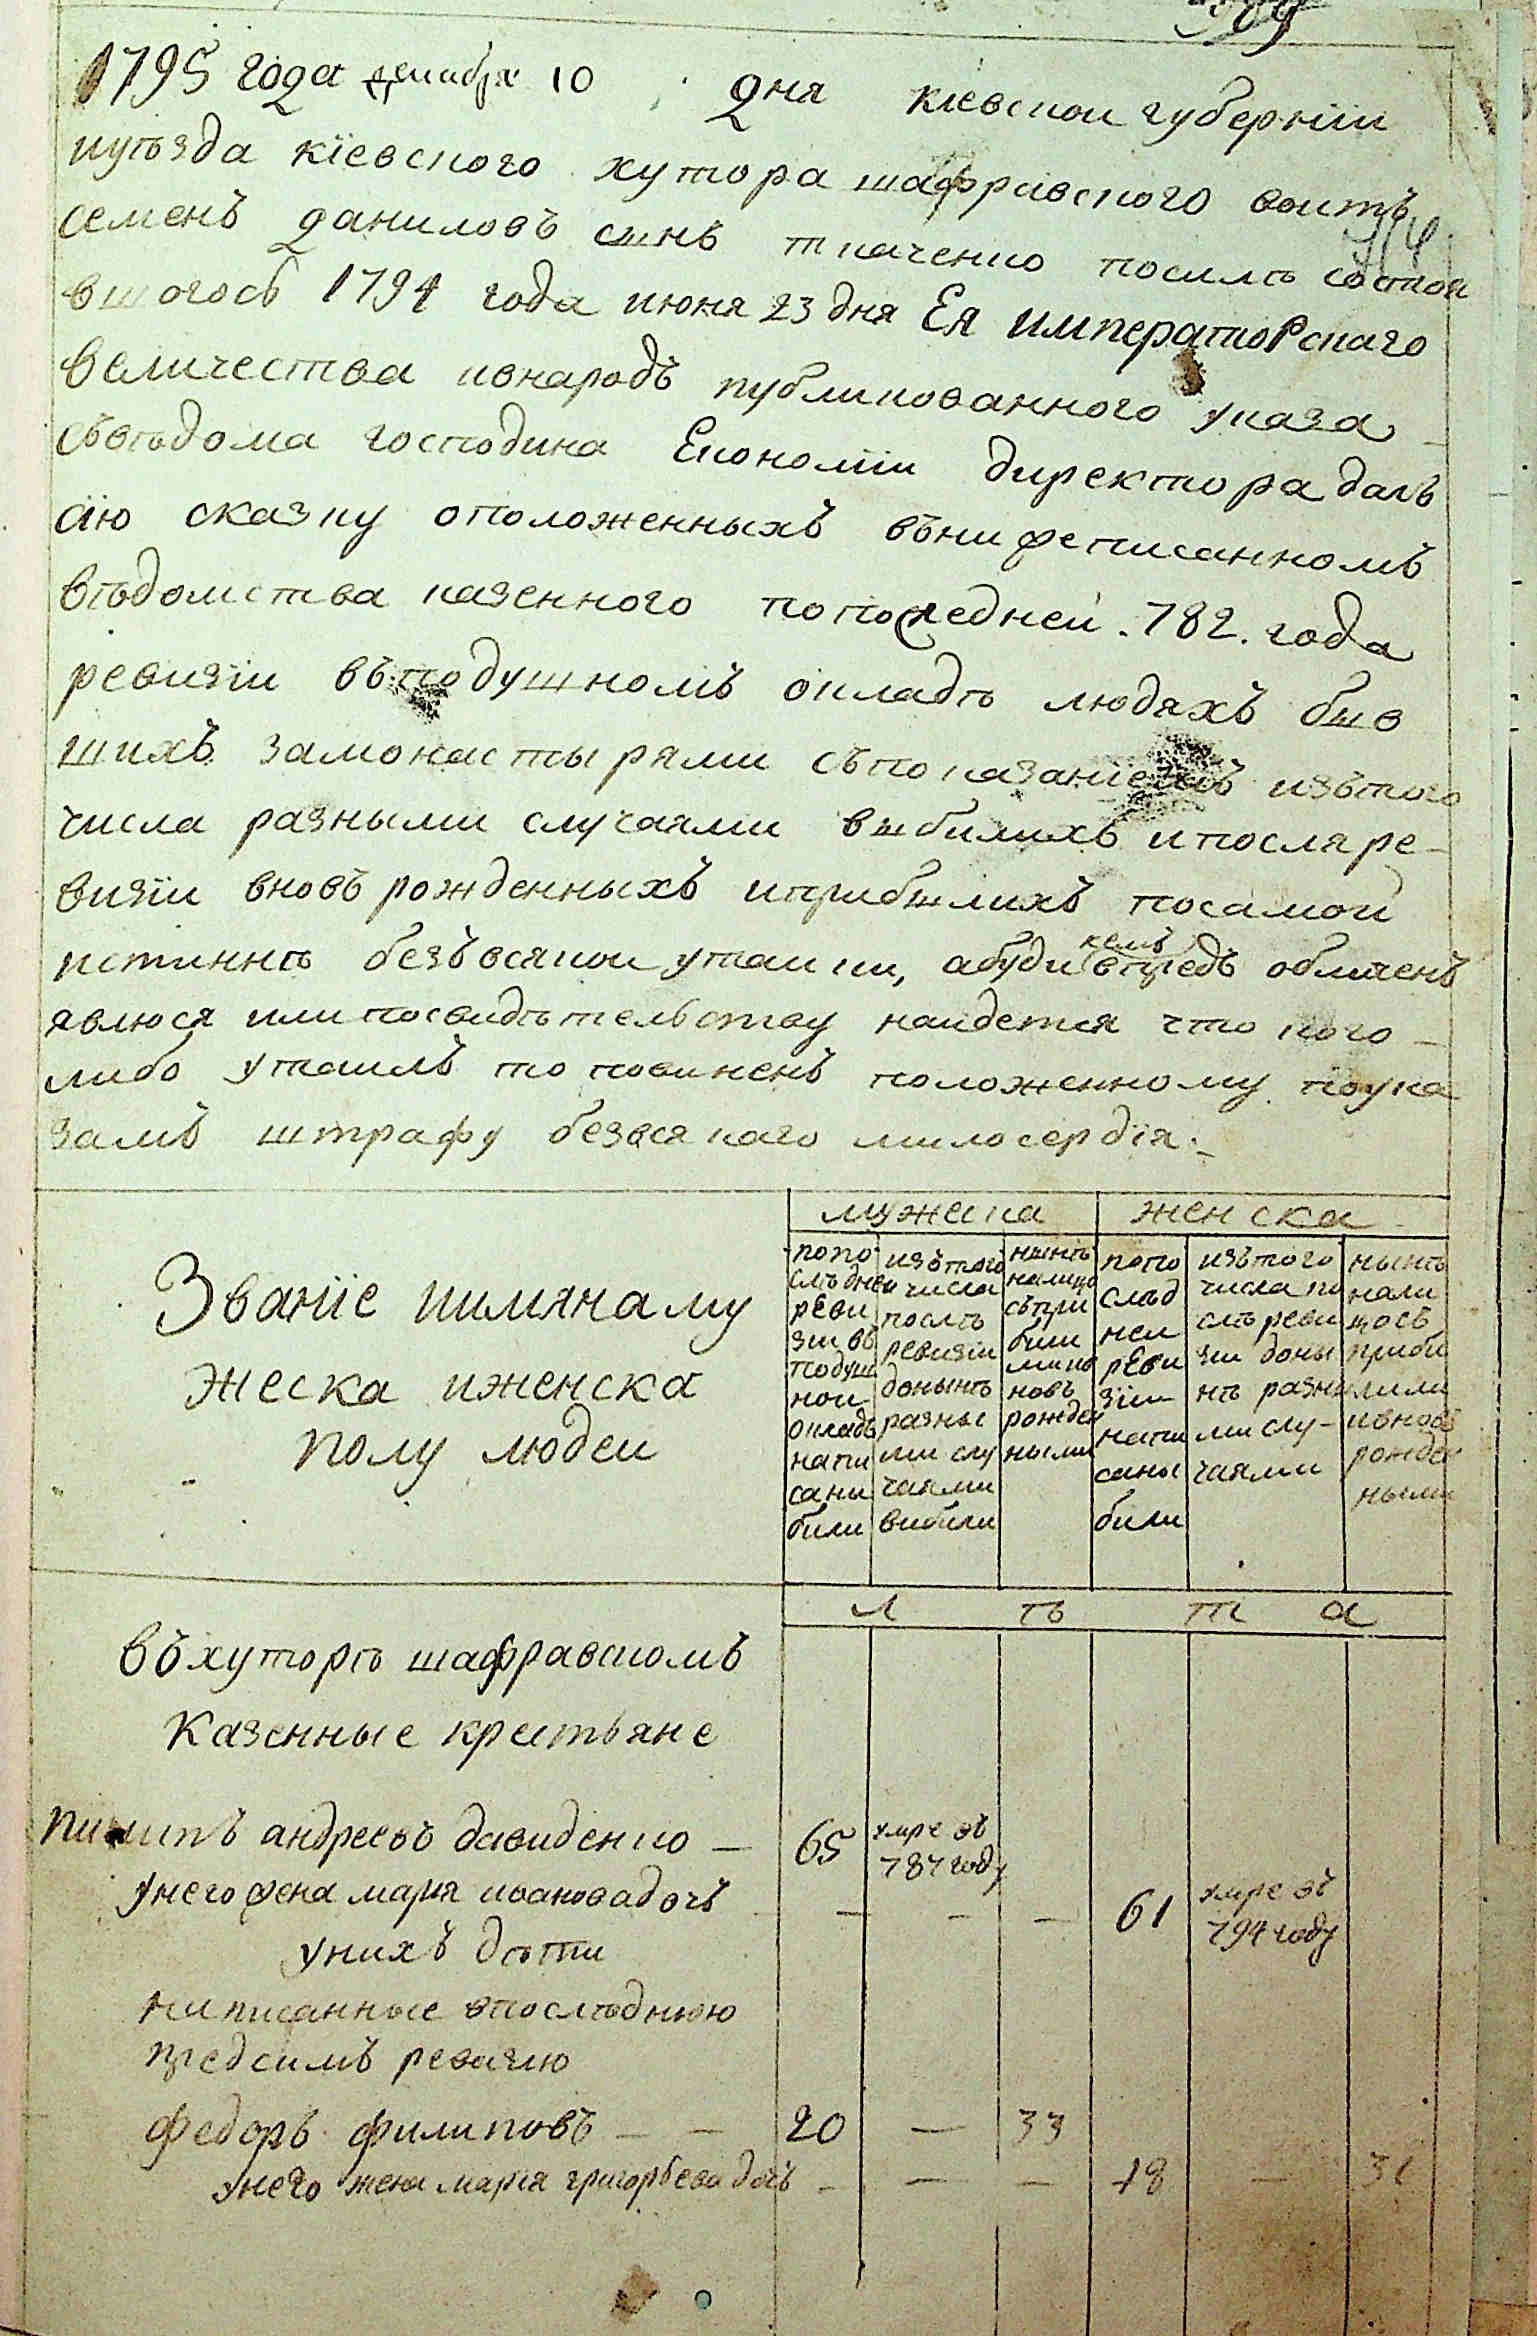 1795 года декабря 10 дня кіевской губерніи
иуѣзда кіевского хутора шафравского воитъ
семенъ даниловъ сынъ ткаченко посилѣ состоя
вшогось 1794 года июня 23 дня Ея императорскаго
величества ивнародъ публикованного указа
съвѣдома господина Економіи директора далъ
сію сказку оположенныхъ вънижеписанномъ
вѣдомства казенного попоследней .782. года
ревизіи въподушномъ окладѣ людяхъ быв
шихъ замонастырями съпоказаніемъ изътого
числа разными случаями выбилихъ ипосляре-
визіи вновъ рожденныхъ иприбылихъ посамой
истиннѣ безъвсякои утаики, абуди
кемъ
впредъ обличенъ
явлюся илипосвидѣтельству наидется что кого-
либо утаилъ то повиненъ положенному поука
замъ штрафу безвсякаго милосердія:
мужеска женска
Званіе иимянаму
жеска иженска
полу людеи
попо
слѣднеи
реви
зіи въ
подуш
нои
окладъ
напи
сани
били
изътого
числа
послѣ
ревизіи
донынѣ
разны
ми слу
чаями
вибили
нынѣ
налицо
съпри
били
мии
новъ
рожден
ными
попо
слѣд
неи
реви
зіи
напи
саны
били
изътого
числа по
слѣ реви
зіи доны
нѣ разны
ми слу-
чаями
нынѣ
нали
цосъ
приби
лими
ивновъ
рожден
ными
л ѣ т а
въхуторѣ шафравскомъ
казенные крестьяне
андреевъ давиденко — 65 умре въ
787 году
унего жена марія ивановадочъ — — — 61 умре въ
794 году
унихъ дѣти
написанные впослѣднюю
предсимъ ревизію
федоръ филиповъ — — 20 — 33
унего жена марія григорьева дочь — — — 18 — 31